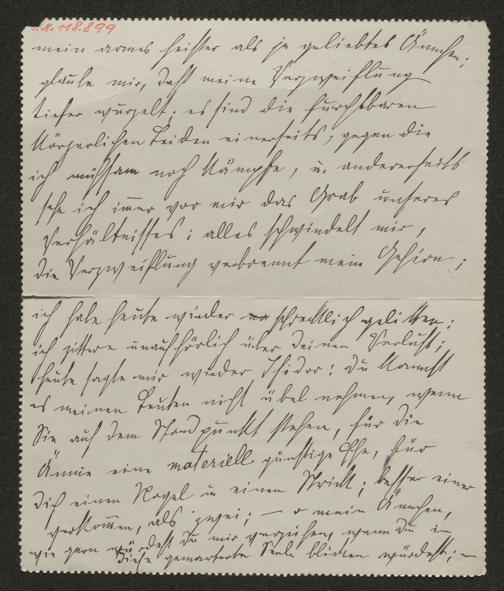 I.N. 118.899
mein armes heißer als je geliebtes Ännchen;
glaube mir, daß meine Verzweiflung
tiefer wurzelt; es sind die furchtbaren
körperlichen Leiden einerseits, gegen die
ich mühsam noch kämpfe, u. andererseits
sehe ich immer vor mir das Grab unseres
Verhältnisses; alles schwindelt mir,
die Verzweiflung verbrennt mein Gehirn;
ich habe heute wieder schrecklich gelitten;
ich zittere unaufhörlich über deinen Verlust;
heute sagte mir wieder Isidor: Du kannst
es meinen Leuten nicht übel nehmen, wenn
Sie auf dem Standpunkt stehen, für die
Ännie eine materiell günstige Ehe, für
dich einen Nagel u einen Strick; besser einer
verkommen, als zwei; – o mein Ännchen,
wie gern würdest Du mir verzeihen, wenn du in
diese gemarterte Seele blicken würdest; –